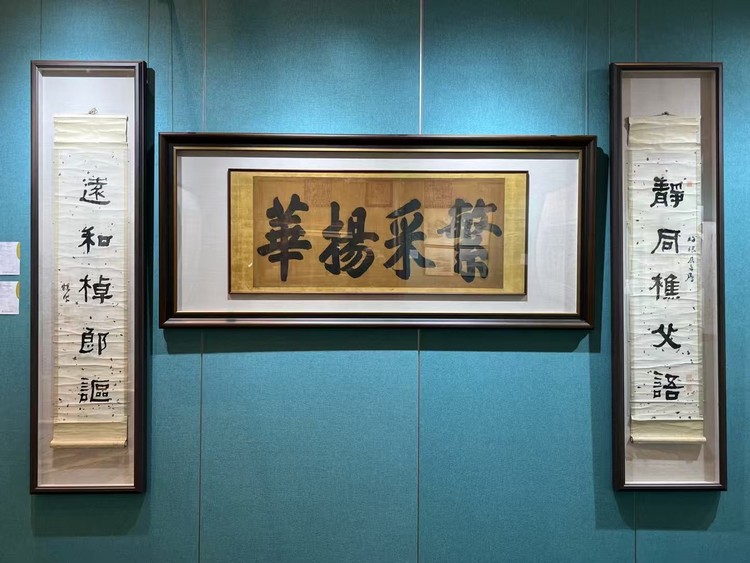 繁采揚華
靜同樵父語
遠和棹郎謳